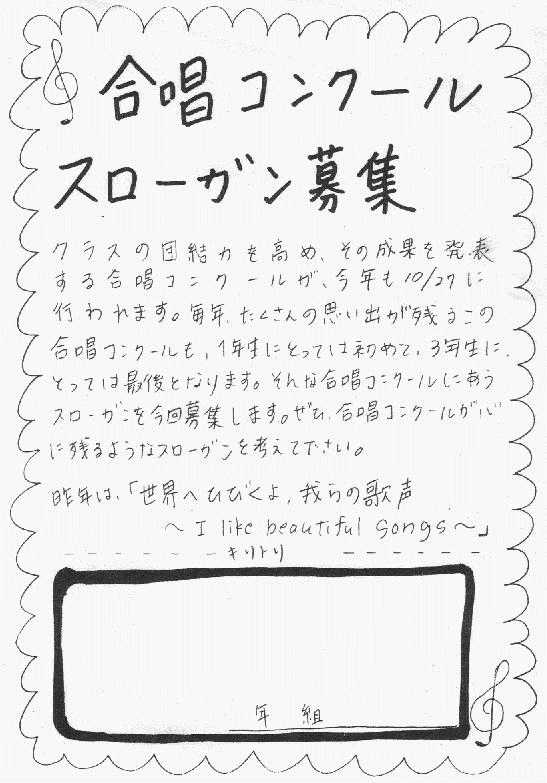 合唱コンクール
スローガン募集
クラスの団結力を高め、その成果を発表
する合唱コンクールが、今年も10/27に
行われます。毎年、たくさんの思い出が残るこの
合唱コンクールも、1年生にとっては初めて、3年生に
とっては最後となります。そんな合唱コンクールにあう
スローガンを今回募集します。ぜひ、合唱コンクールが心
に残るようなスローガンを考えて下さい。
昨年は、「世界へひびくよ、我らの歌声
～I like beautiful songs～」
キリトリ
年 組